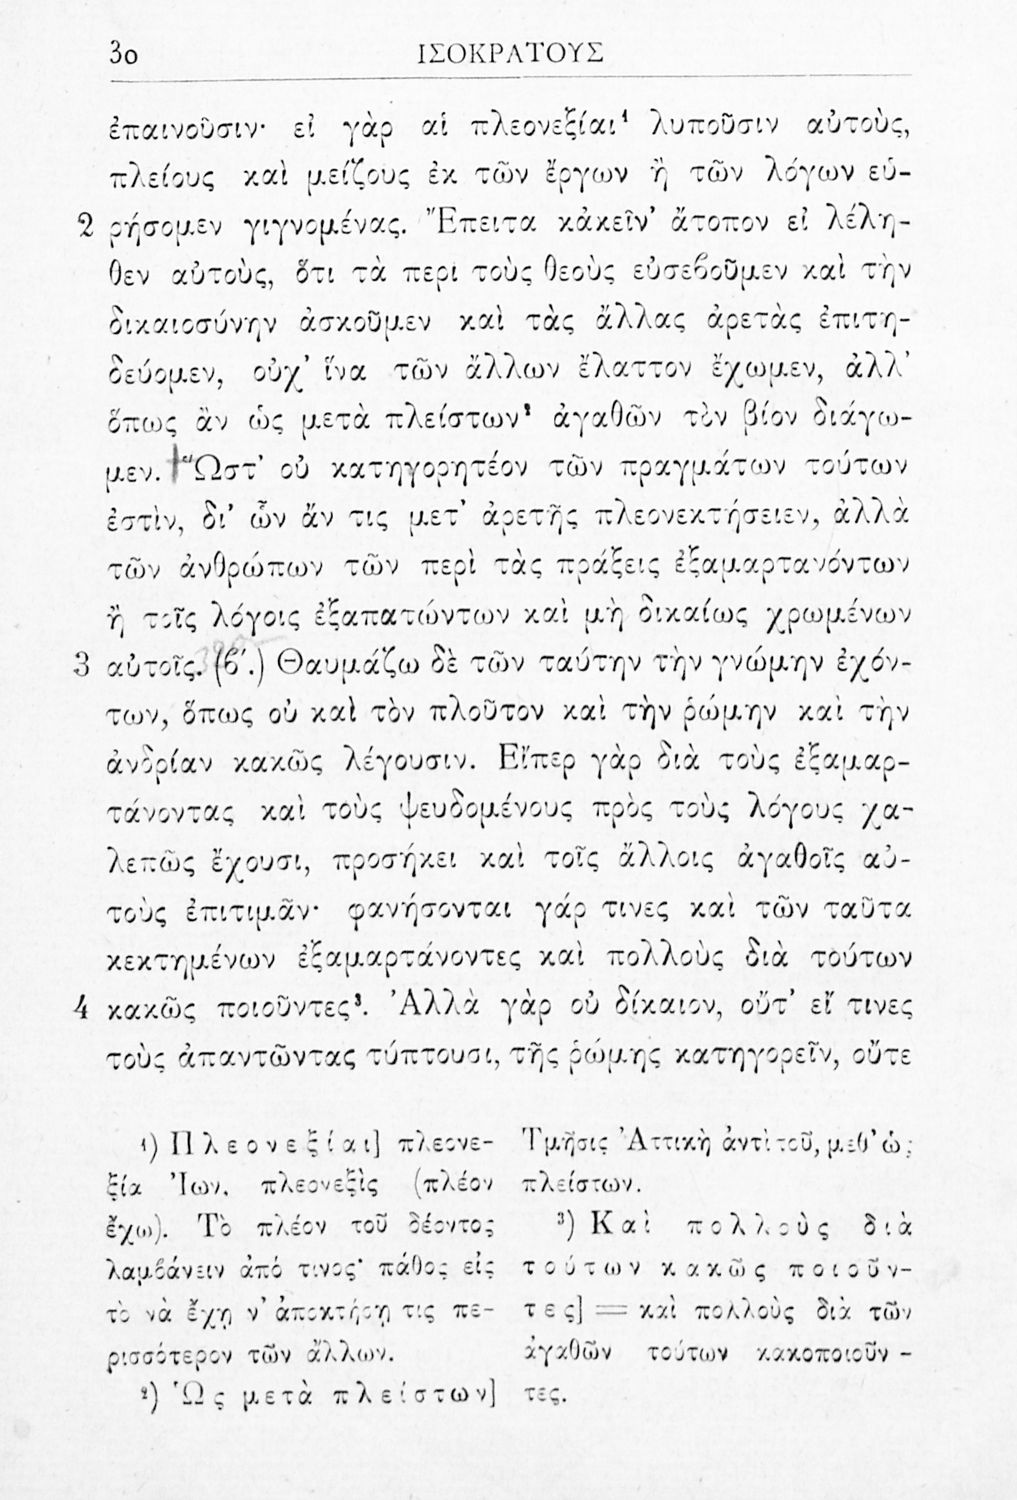 30 ΙΣΟΚΡΑΤΟΥΣ
ἐπαινοῦσιν· εἰ γὰρ αἱ πλεονεξίαι¹ λυποῦσιν αὐτοὺς,
πλείους καὶ μείζους ἐκ τῶν ἔργων ἢ τῶν λόγων εὑ-
2 ρήσομεν γιγνομένας. Ἔπειτα κἀκεῖν’ ἄτοπον εἰ λέλη-
θεν αὐτοὺς, ὅτι τὰ περὶ τοὺς θεοὺς εὐσεβοῦμεν καὶ τὴν
δικαιοσύνην ἀσκοῦμεν καὶ τὰς ἄλλας ἀρετὰς ἐπιτη-
δεύομεν, οὐχ’ ἵνα τῶν ἄλλων ἔλαττον ἔχωμεν, ἀλλ’
ὅπως ἂν ὡς μετὰ πλείστων² ἀγαθῶν τὸν βίον διάγω-
μεν. Ὥστ’ οὐ κατηγορητέον τῶν πραγμάτων τούτων
ἐστὶν, δι’ ὧν ἄν τις μετ’ ἀρετῆς πλεονεκτήσειεν, ἀλλὰ
τῶν ἀνθρώπων τῶν περὶ τὰς πράξεις ἐξαμαρτανόντων
ἢ τοῖς λόγοις ἐξαπατώντων καὶ μὴ δικαίως χρωμένων
3 αὐτοῖς. (β′.) Θαυμάζω δὲ τῶν ταύτην τὴν γνώμην ἐχόν-
των, ὅπως οὐ καὶ τὸν πλοῦτον καὶ τὴν ῥώμην καὶ τὴν
ἀνδρίαν κακῶς λέγουσιν. Εἴπερ γὰρ διὰ τοὺς ἐξαμαρ-
τάνοντας καὶ τοὺς ψευδομένους πρὸς τοὺς λόγους χα-
λεπῶς ἔχουσι, προσήκει καὶ τοῖς ἄλλοις ἀγαθοῖς αὐ-
τοὺς ἐπιτιμᾶν· φανήσονται γάρ τινες καὶ τῶν ταῦτα
κεκτημένων ἐξαμαρτάνοντες καὶ πολλοὺς διὰ τούτων
4 κακῶς ποιοῦντες³. Ἀλλὰ γὰρ οὐ δίκαιον, οὔτ’ εἴ τινες
τοὺς ἀπαντῶντας τύπτουσι, τῆς ῥώμης κατηγορεῖν, οὔτε
¹) Πλεονεξίαι] πλεονε-
ξία Ἰων. πλεονεξὶς (πλέον
ἔχω). Τὸ πλέον τοῦ δέοντος
λαμβάνειν ἀπό τινος· πάθος εἰς
τὸ νὰ ἔχῃ ν’ ἀποκτήσῃ τις πε-
ρισσότερον τῶν ἄλλων.
²) Ὡς μετὰ πλείστων]
Τμῆσις Ἀττικὴ ἀντὶ τοῦ, μεθ’ ὡς
πλείστων.
³) Καὶ πολλοὺς διὰ
τούτων κακῶς ποιοῦν-
τες] = καὶ πολλοὺς διὰ τῶν
ἀγαθῶν τούτων κακοποιοῦν-
τες.